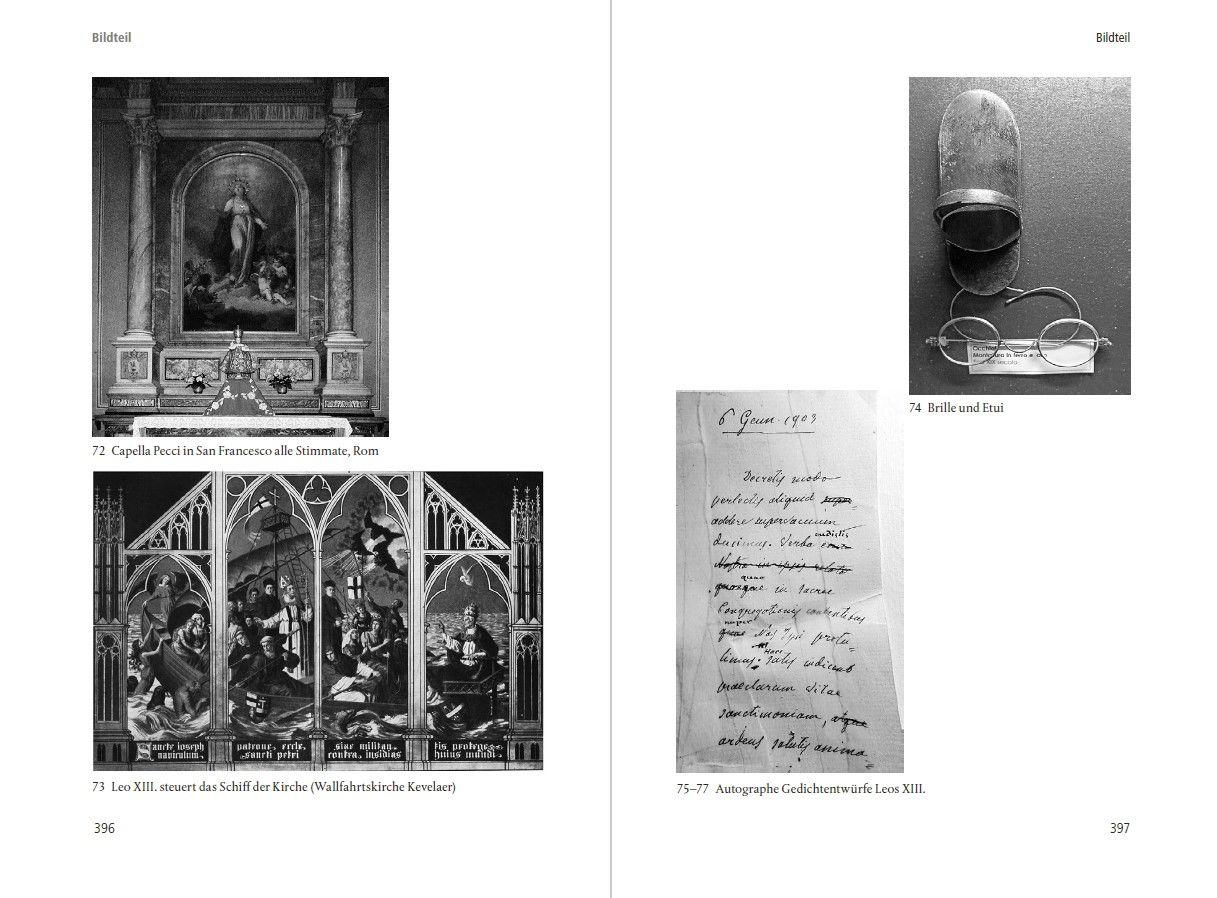 Bildteil
72 Capella Pecci in San Francesco alle Stimmate, Rom
Sancte ioseph
naviculum.
patrone, eccle,
sancti petri
siae militan,
contra, insidias
tis protege,
huius mundi.
73 Leo XIII. steuert das Schiff der Kirche (Wallfahrtskirche Kevelaer)
396
Bildteil
Occhiali
Montatura in ferro e
XIX secolo
74 Brille und Etui
6 Genn. 1903
Decretis modo
perlectis aliquid
addere supervacuum
ducimus. Verba
in sacrae
Congregationis
Nos Ipsi protu=
limus. satis indicab
praeclarum vitae
sanctimoniam, atque
ardens salutis anima
75–77 Autographe Gedichtentwürfe Leos XIII.
397